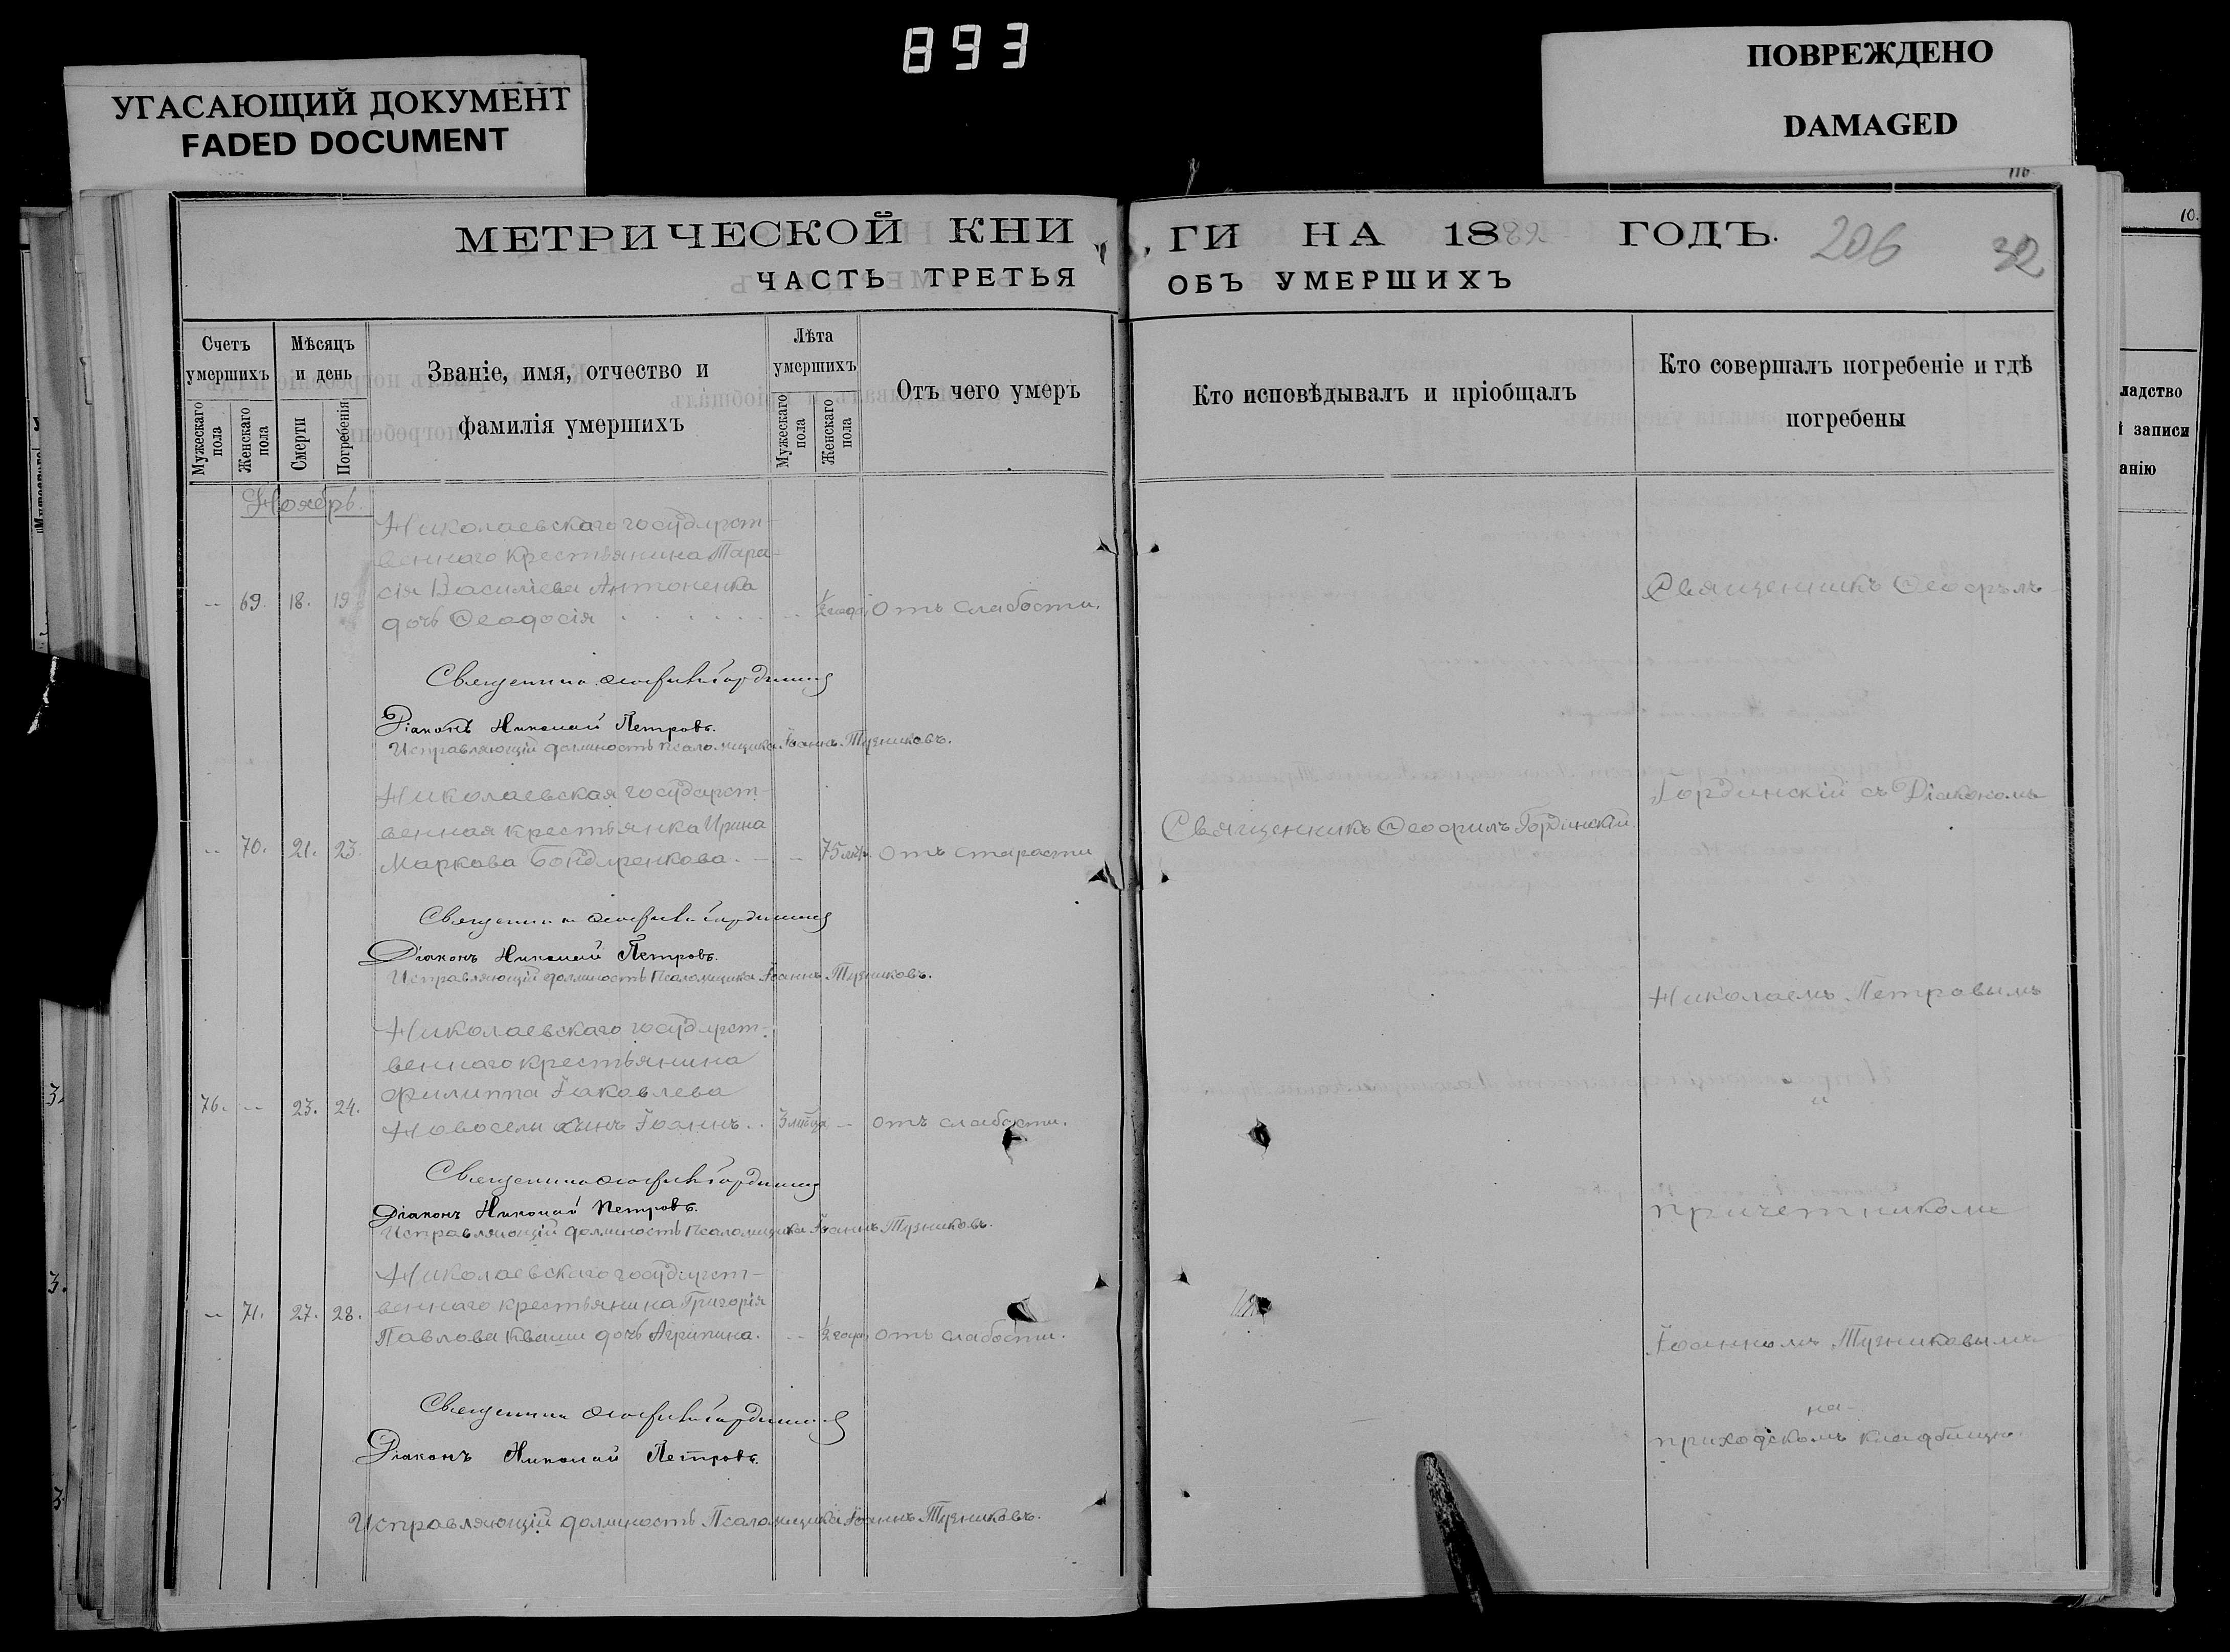 893
УГАСАЮЩИЙ ДОКУМЕНТ
FADED DOCUMENT
ПОВРЕЖДЕНО
DAMAGED
116
10.
МЕТРИЧЕСКОЙ КНИ
ГИ НА 1889 ГОДЪ.
206
32
ЧАСТЬ ТРЕТЬЯ
ОБЪ УМЕРШИХЪ
Счетъ умершихъ
Мужескаго пола
Женскаго пола
Мѣсяцъ и день
Смерти
Погребенія
Званіе, имя, отчество и
фамилія умершихъ
Лѣта умершихъ
Мужескаго пола
Женскаго пола
Отъ чего умеръ
Кто исповѣдывалъ и пріобщалъ
Кто совершалъ погребеніе и гдѣ
погребены
ладство
й записи
анію
Ноябрь.
Николаевскаго государст-
веннаго крестьянина Тара-
сія Василіева Антоненка
-- 69. 18. 19
дочь Ѳеодосія
1/2 года
Отъ слабости.
Священникъ Ѳеофилъ Гординскій
Діаконъ Николай Петровъ.
Исправляющій должность псаломщика Іоаннъ Тузниковъ.
Николаевская государст-
венная крестьянка Ирина
-- 70. 21. 23.
Маркова Бондаренкова. - - 75 лѣтъ. Отъ старости
Священникъ Ѳеофилъ Гординскій
Священникъ Ѳеофилъ Гординскій
Діаконъ Николай Петровъ.
Исправляющій должность Псаломщика Іоаннъ Тузниковъ.
Николаевскаго государст-
веннаго крестьянина
Филиппа Іаковлева
76. -- 23. 24.
Новосели сынъ Іоаннъ. . 3 мѣсца - отъ слабости.
Священникъ Ѳеофилъ Гординскій
Діаконъ Николай Петровъ.
Исправляющій должность Псаломщика Іоаннъ Тузниковъ.
Николаевскаго государст-
веннаго крестьянина Григорія
-- 71. 27. 28.
Павлова Кваши дочь Агрипина. -- 1/2 года отъ слабости.
Священникъ Ѳеофилъ Гординскій
Діаконъ Николай Петровъ.
Исправляющій должность Псаломщика Іоаннъ Тузниковъ.
Священникъ Ѳеофилъ
Гординскій съ Діакономъ
Николаемъ Петровымъ
причетникомъ
Іоанномъ Тузниковымъ
на
приходскомъ кладбищѣ.